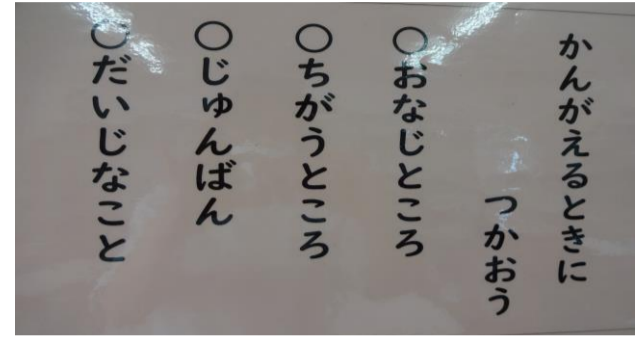 かんがえるときに
つかおう
○おなじところ
○ちがうところ
○じゅんばん
○だいじなこと